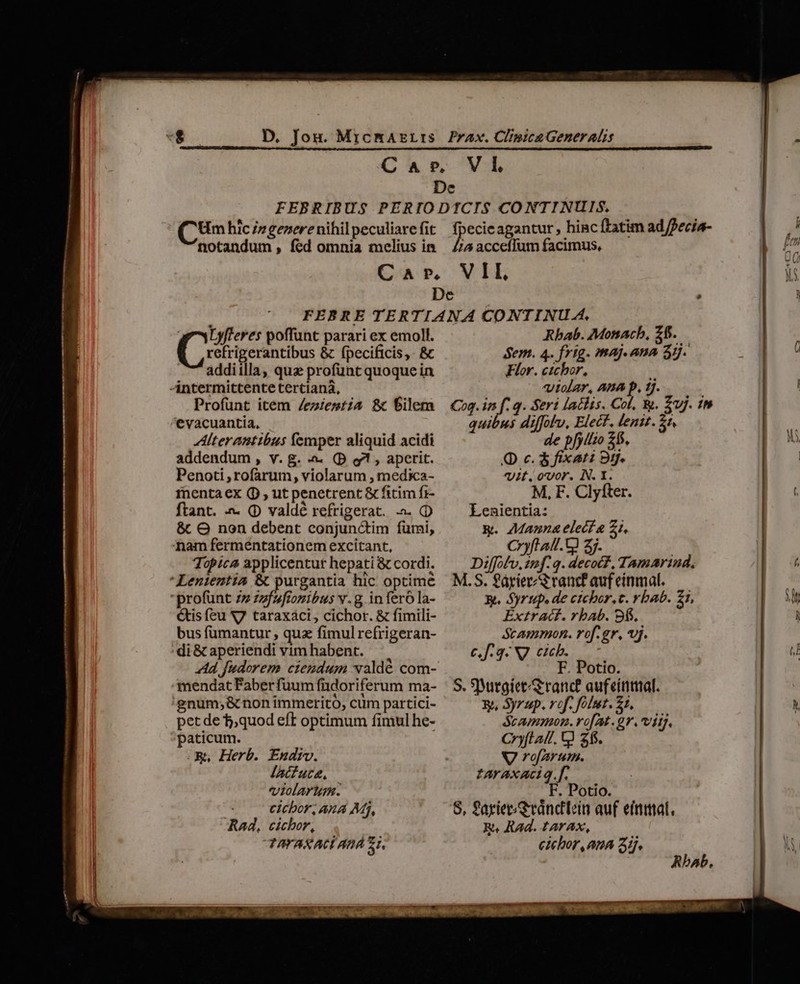 8 D. Joh. Michaelis Prax. Clinica Generalis
Cap. VI.
De
FEBRIBUS PERIODICIS CONTINUIS.
CUm hic in genere nihil peculiare sit
notandum, sed omnia melius in
specie agantur, hinc statim ad specia-
lia accessum facimus.
Cap. VII.
De
FEBRE TERTIANA CONTINUA.
CLysteres possunt parari ex emoll.
refrigerantibus & specificis, &
addi illa, quæ prosunt quoque in
intermittente tertianâ.
Prosunt item lenientia & bilem
evacuantia.
Alterantibus semper aliquid acidi
addendum, v. g. aperit.
Penoti, rosarum, violarum, medica-
menta ex 🜔, ut penetrent & sitim si-
stant. 🜔 valdè refrigerat. 🜔
& 🜔 non debent conjunctim sumi,
nam fermentationem excitant.
Topica applicentur hepati & cordi.
Lenientia & purgantia hîc optimè
prosunt in infusionibus v. g. in sero la-
ctis seu 🜄 taraxaci, cichor. & simili-
bus sumantur, quæ simul refrigeran-
di & aperiendi vim habent.
Ad sudorem ciendum valdè com-
mendat Faber suum sudoriferum ma-
gnum, & non immeritò, cùm partici-
pet de ♄, quod est optimum simul he-
paticum.
℞. Herb. Endiv.
lactucæ,
violarum.
cichor. ana Mj,
Rad. cichor,
taraxaci ana ℥i.
Rhab. Monach. ℥ß.
Sem. 4. frig. maj. ana ʒij.
Flor. cichor.
violar, ana p. ij.
Coq. in s. q. Seri lactis. Col. ℞. ℥vj. in
quibus dissolv. Elect. lenit. ℥i,
de psyllio ℥ß,
🜔 c. fixati ℈ij.
vit. ovor. N. 1.
M. F. Clyster.
Lenientia:
℞. Manna electæ ℥i.
Crystall. ʒj.
Dissolv. in s. q. decoct. Tamarind.
M. S. Laxier-Tranck auf einmal.
℞. Syrup. de cichor. c. rhab. ℥i,
Extract. rhab. ℈ß.
Scammon. ros. gr. vj.
c. s. q. 🜄 cich.
F. Potio.
S. Purgier-Tranck auf einmal.
℞. Syrup. ros. solut. ℥i,
Scammon. rosat. gr. viij.
Crystall. ʒß.
🜄 rosarum.
taraxaci q. s.
F. Potio.
S. Laxier-Träncklein auf einmal.
℞. Rad. tarax,
cichor, ana ʒij.
Rhab.